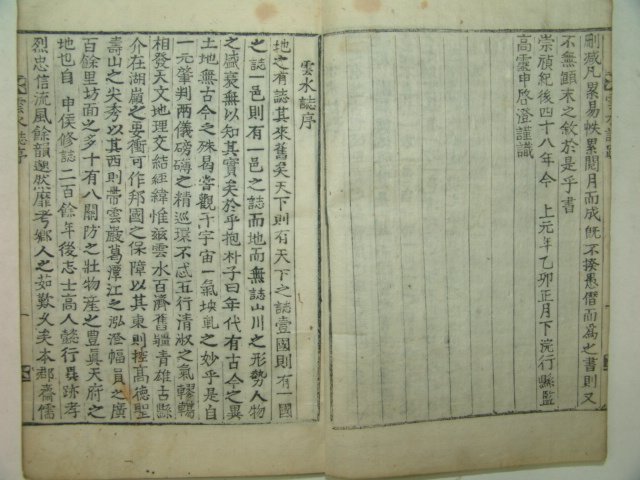 刪蔵凡累易帙累閱月而成旣不揆愚僭而爲之書則又
不無顚末之敘於是乎書
崇禎紀後四十八年今 上元年乙卯正月下浣行縣監
高靈申啓澄謹識
雲水誌序
地之有誌其來舊矣天下則有天下之誌壹國則有一國
之誌一邑則有一邑之誌而地而無誌山川之形勢人物
之盛衰無以知其實矣於乎抱朴子曰年代有古今之異
土地無古今之殊曷嘗觀于宇宙一氣坱軋之妙乎是自
一元肇判兩儀磅礡之精巡環不忒五行清淑之氣轇轕
相發天文地理文結經緯惟玆雲水百濟舊疆青雄古縣
介在湖嶺之要衝可作邦國之保障以其東則控高德聖
壽山之尖秀以其西則帶雲巖葛潭江之泓澄幅員之廣
百餘里坊面之多十有八關防之壯物産之豊眞天府之
地也自 申侯修誌二百餘年後志士高人懿行異跡孝
烈忠信流風餘韻邈然靡考鄉人之茹歎久矣本郡齋儒
雲水誌序